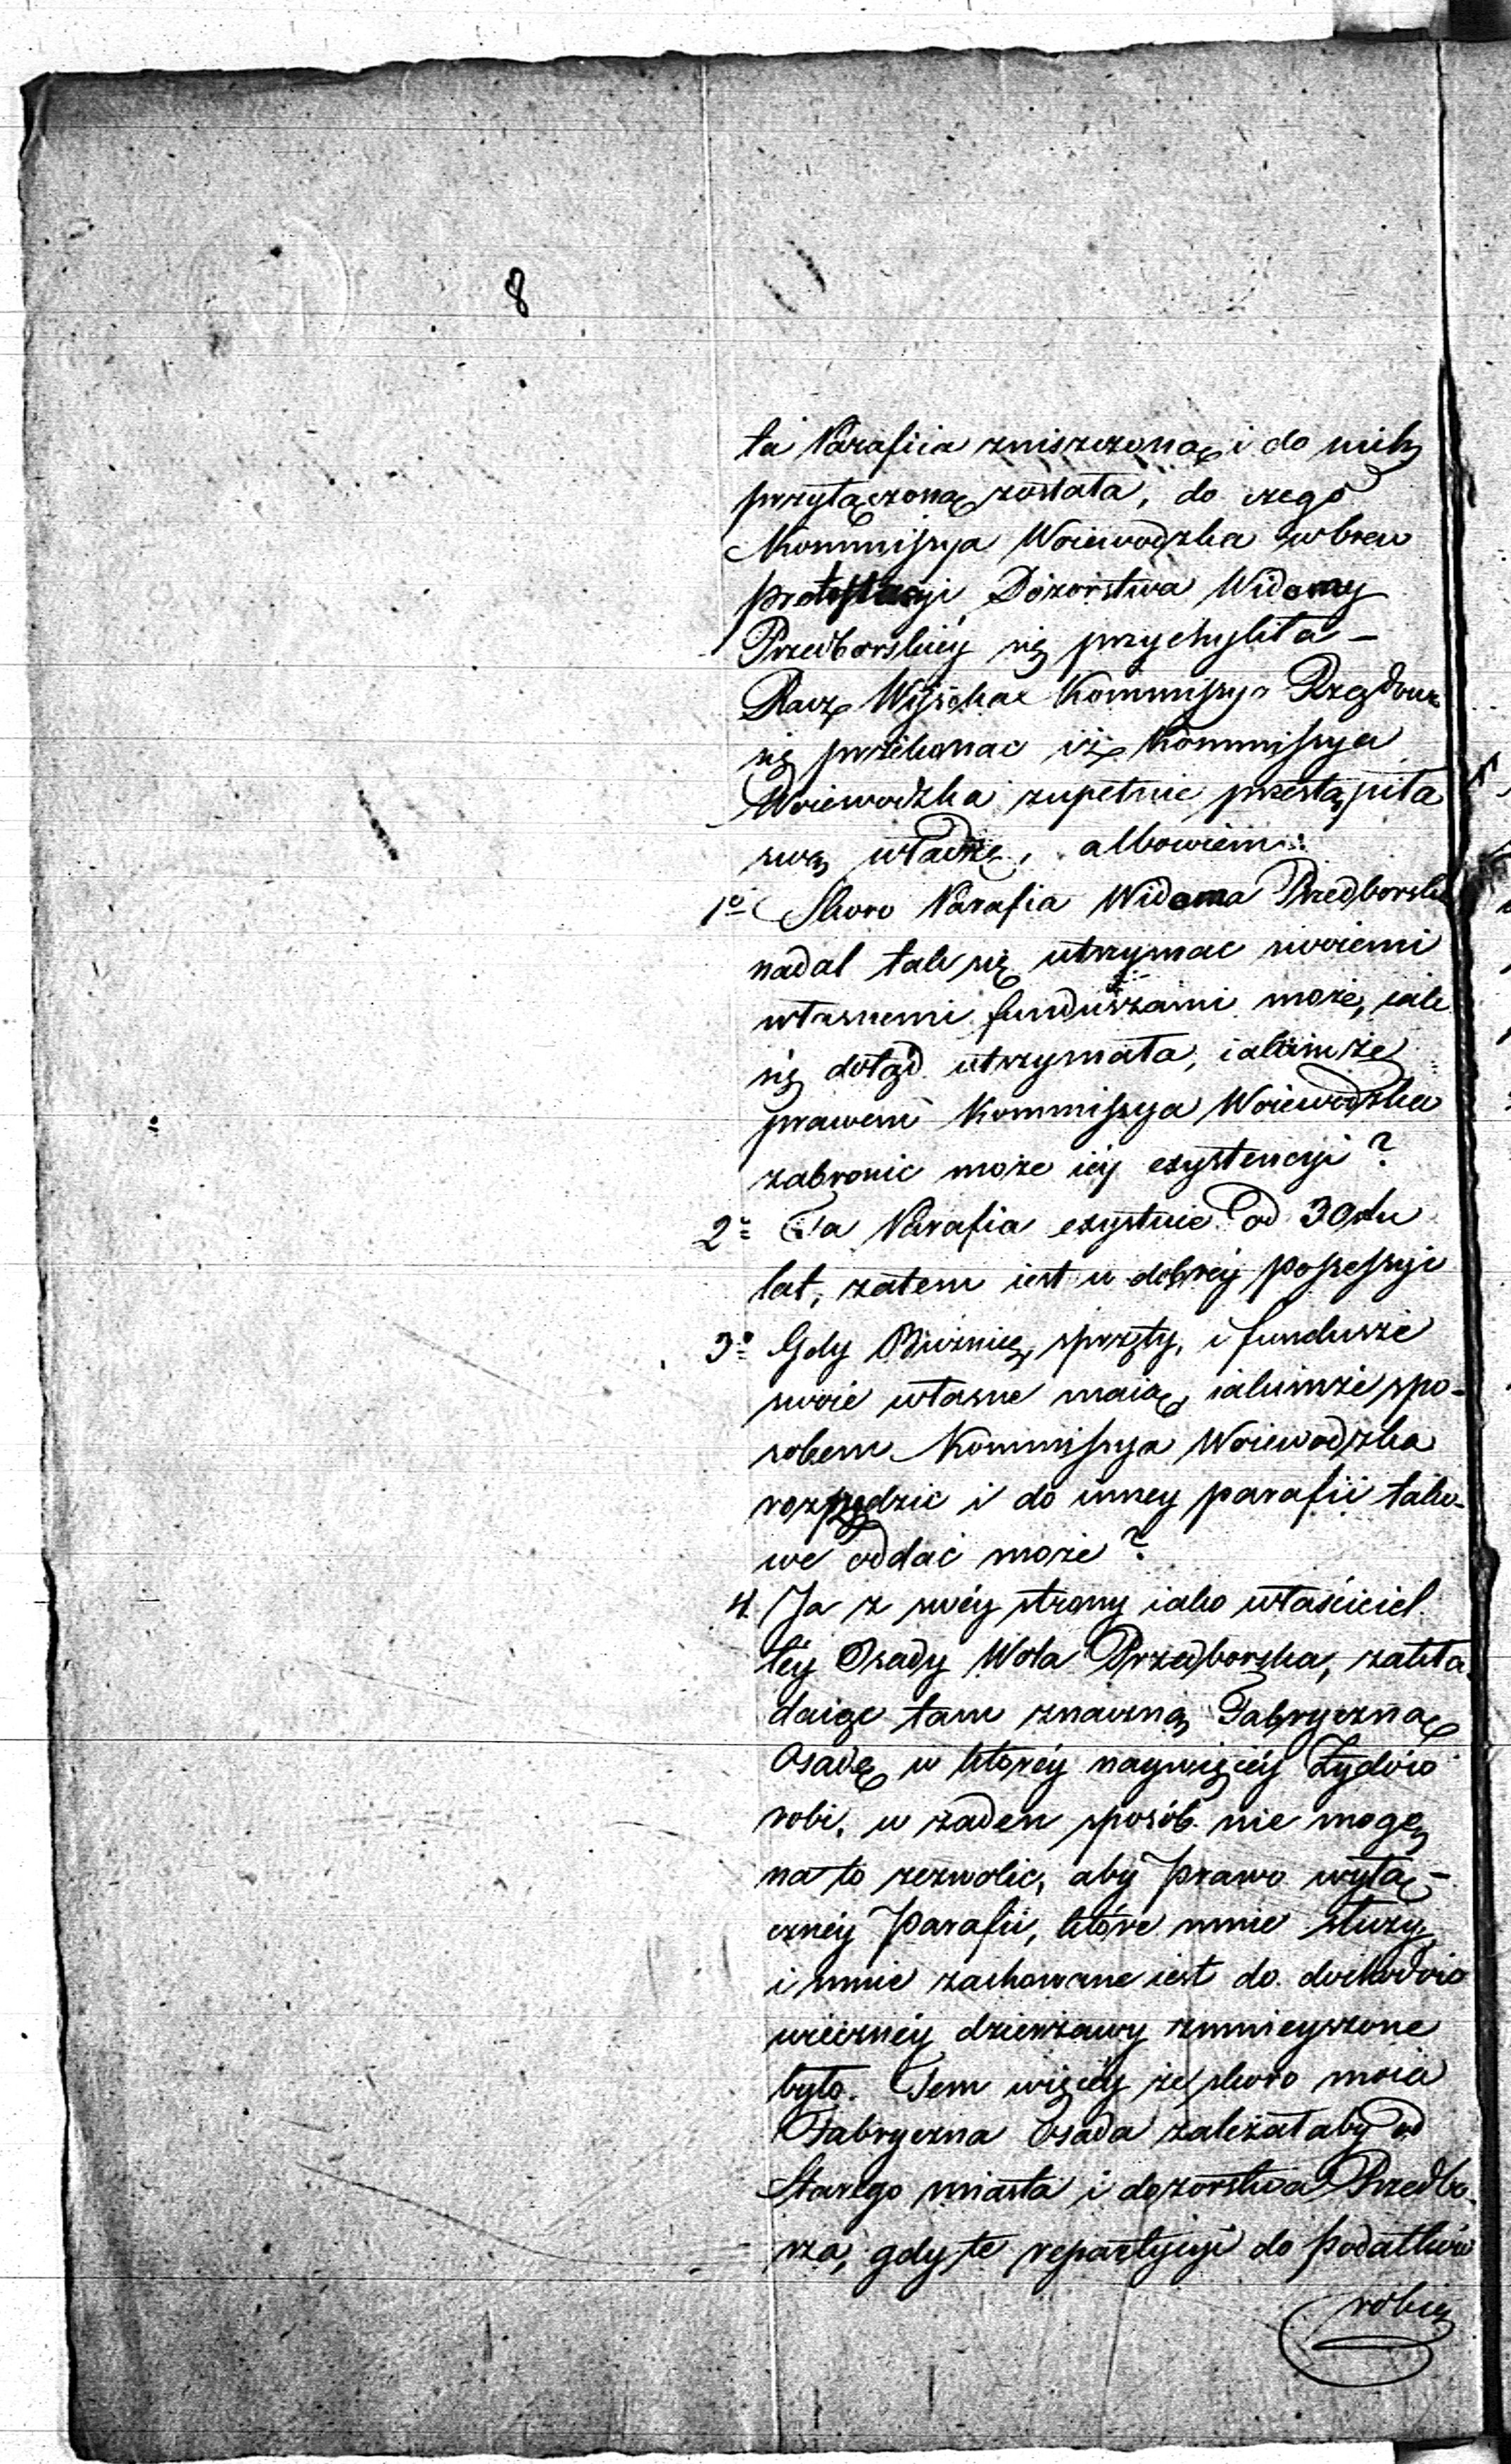 8
ta Parafiia zniszczoną i do nich
przyłączoną została, do czego
Kommissya Woiewodzka wbrew
protestacyi Dozorstwa Widomy
Przedborskiéy się przychyliła –
Racz Wysoka Kommissyo Rządowa
się przekonac iż Kommissya
Woiewodzka zupełnie przestąpiła
swą władzę, albowiem:
1o Skoro Parafia Widoma Przedborska
nadal tak się utrzymac swoiemi
własnemi funduszami może, iak
się dotąd utrzymała, iakiimże
prawem Kommissya Woiewodzka
zabronic może iéy exystencyi?
2o Ta Parafia exystuie od 30stu
lat, zatem iest w dobréy possessyi
3o Gdy Bużnicę, sprzęty, i fundusze
swoie własne maią, iakimże spo-
sobem Kommissya Woiewodzka
rozpędzic i do inney parafii tako-
we oddać może?
4. Ja z swéy strony iako właściciel
téy Osady Wola Przedborska, zakła-
daiąc tam znaczną Fabryczną
Osadę w któréy naywięcéy Żydów
robi, w żaden sposób nie mogę
na to zezwolic, aby prawo wyłą-
cznéy Parafii, które mnie służy
i mnie zachowane iest do dochodów
wiecznéy dzierżawy zmnieyszone
było. Tem więcéy że skoro moia
Fabryczna Osada zależałaby od
Starego miasta i dozorstwa Przedbo-
rza, gdy te repartycyi do podatków
robią